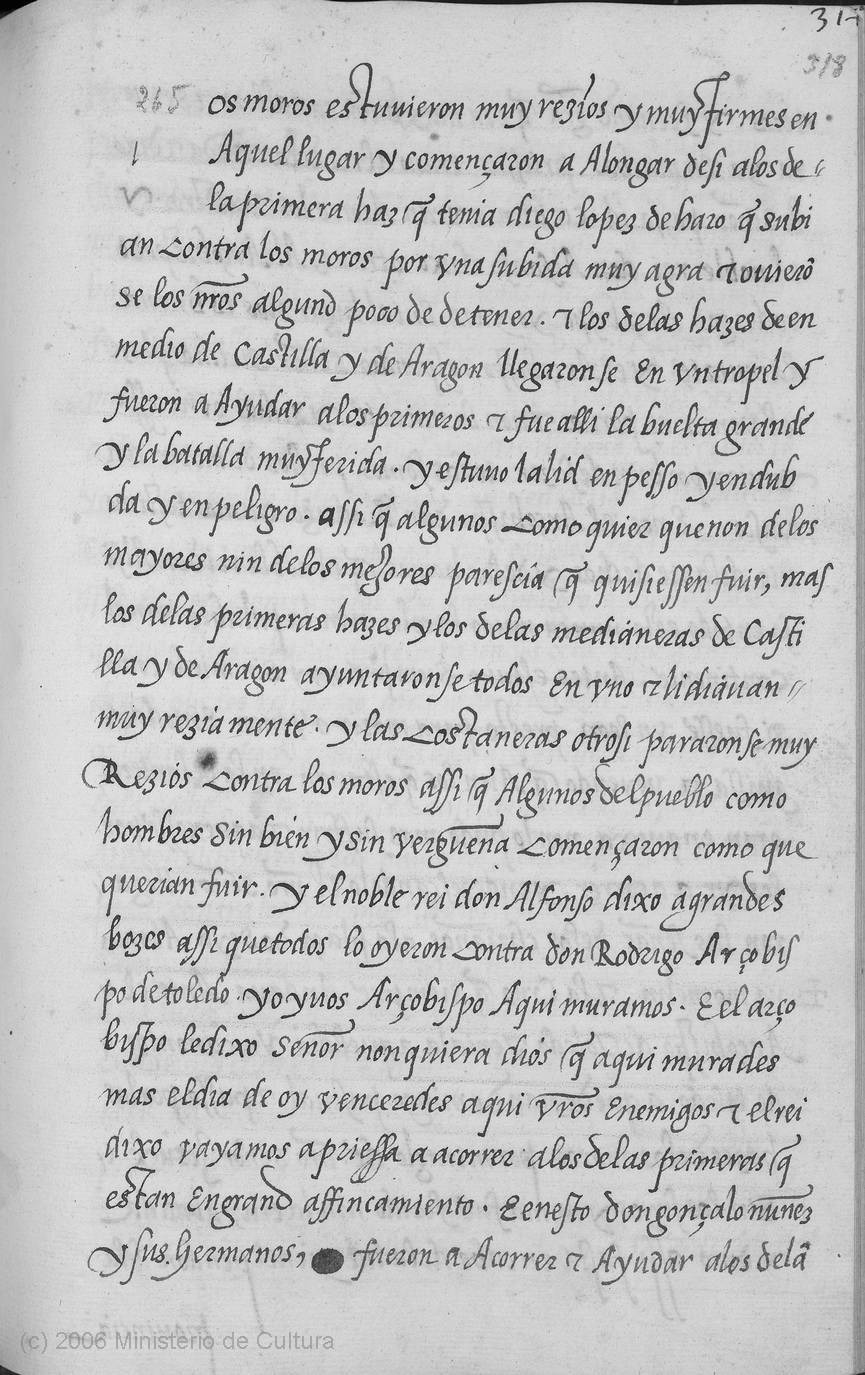 314
318
265 os moros estuuieron muy rezios y muy firmes en
Aquel lugar y començaron a Alongar desi alos de
la primera haz q̃ tenia diego lopez de haro q̃ subi
an contra los moros por vna subida muy agra ⁊ ouierõ
se los nr̃os algund poco de detener. ⁊ los delas hazes de en
medio de Castilla y de Aragon llegaronse En vn tropel y
fueron a Ayudar alos primeros ⁊ fue alli la buelta grande
y la batalla muy ferida. y estuuo la lid en pesso y en dub
da y en peligro. assi q̃ algunos como quier que non delos
mayores nin delos mejores parescia q̃ quisiessen fuir, mas
los delas primeras hazes y los delas medianeras de Casti
lla y de Aragon ayuntaronse todos En vno ⁊ lidiauan
muy reziamente. y las costaneras otrosi pararonse muy
Rezios contra los moros assi q̃ Algunos del pueblo como
hombres Sin bien y sin verguena començaron como que
querian fuir. y el noble rei don Alfonso dixo agrandes
bozes assi que todos lo oyeron contra don Rodrigo Arçobis
po de toledo. yo y uos Arçobispo Aqui muramos. E el arço
bispo le dixo señor non quiera dios q̃ aqui murades
mas el dia de oy venceredes aqui vr̃os Enemigos ⁊ el rei
dixo vayamos apriessa a acorrer alos delas primeras q̃
estan En grand affincamiento. E en esto don gonçalo nuñez
y sus hermanos, fueron a Acorrer ⁊ Ayudar alos delã
(c) 2006 Ministerio de Cultura